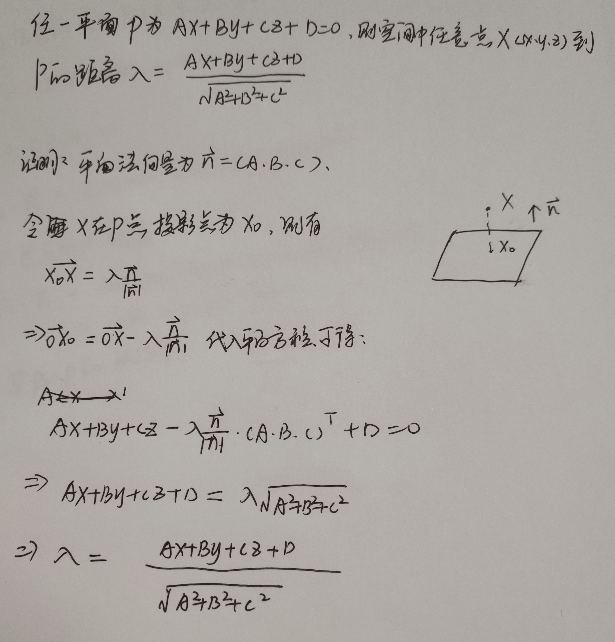 任一平面P为 AX+By+Cz+D=0,则空间中任意点X(x.y.z)到
P的距离 λ = (AX+By+Cz+D)/√(A²+B²+C²)
证明: 平面法向量为 n⃗ = (A.B.C).
令 X在P点投影点为X₀, 则有
X₀X⃗ = λ n⃗/|n⃗|
⇒ OX₀⃗ = OX⃗ - λ n⃗/|n⃗| 代入平面方程可得:
AX+By+Cz - λ n⃗/|n⃗| · (A.B.C)ᵀ + D = 0
⇒ AX+By+Cz+D = λ√(A²+B²+C²)
⇒ λ = (AX+By+Cz+D)/√(A²+B²+C²)
X
n⃗
X₀